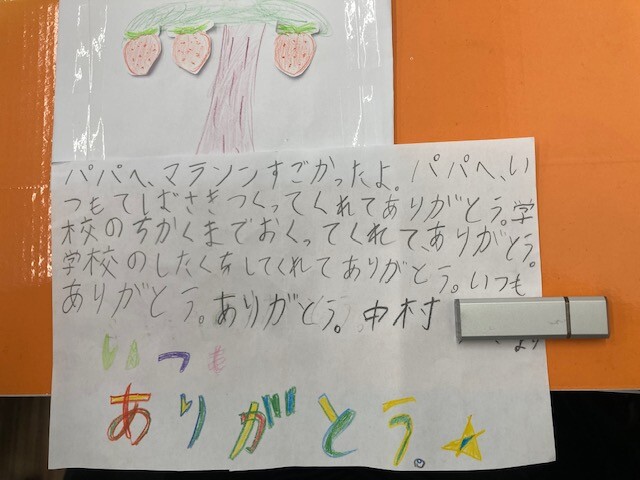 パパへ、マラソンすごかったよ。パパへ、い
つもてばさきつくってくれてありがとう。学
校のちかくまでおくってくれて、ありがとう。
学校のしたくをしてくれてありがとう。いつも
ありがとう。ありがとう。中村
より
いつも
ありがとう。